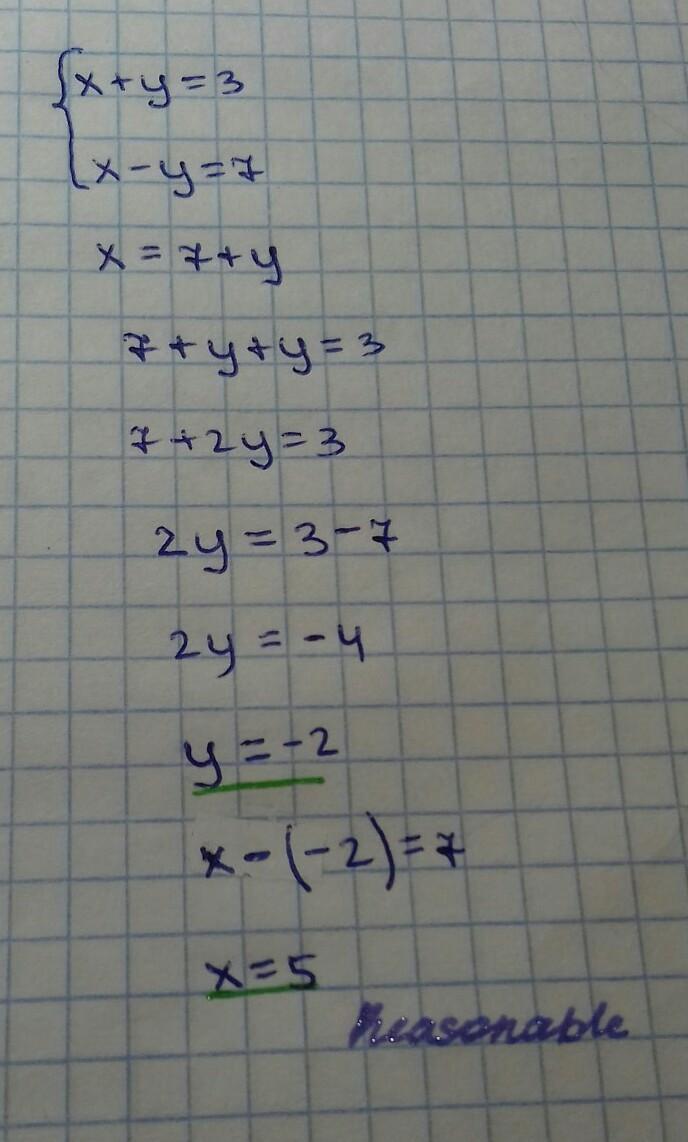 x+y=3
x-y=7
x=7+y
7+y+y=3
7+2y=3
2y=3-7
2y=-4
y=-2
x-(-2)=7
x=5
Reasonable